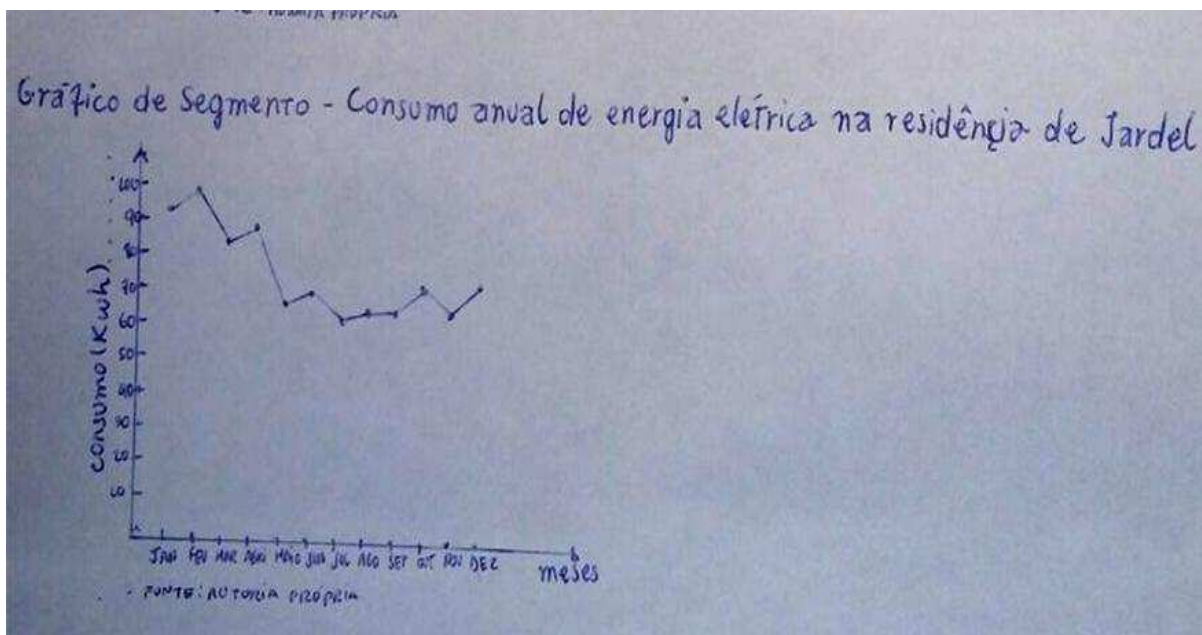 AUTORIA PRÓPRIA
Gráfico de Segmento - Consumo anual de energia elétrica na residência de Jardel
consumo (Kwh)
100
90
80
70
60
50
40
30
20
10
JAN FEV MAR ABRI MAIO JUN JUL AGO SET OUT NOV DEZ
meses
FONTE: AUTORIA PRÓPRIA